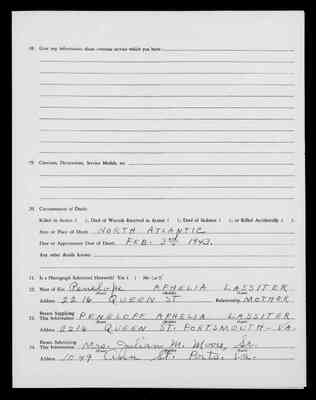 18. Give any information about overseas service which you have:
19. Citations, Decorations, Service Medals, etc.
20. Circumstances of Death:
Killed in Action ( ), Died of Wounds Received in Action ( ), Died of Sickness ( ), or Killed Accidentally ( ).
Area or Place of Death NORTH ATLANTIC
Date or Approximate Date of Death FEB. 3rd 1943.
Any other details known
21. Is a Photograph Submitted Herewith? Yes ( ) No
22. Next of Kin Penelope APHELIA LASSITER
Address 2216 QUEEN ST Relationship MOTHER
23. Person Supplying This Information PENELOPF APHELIA LASSITER
Address 2216 QUEEN ST. PORTSMOUTH - VA.
24. Person Submitting This Information Mrs. Julian M. Moore, Sr.
Address 1049 St. Ports. Va.